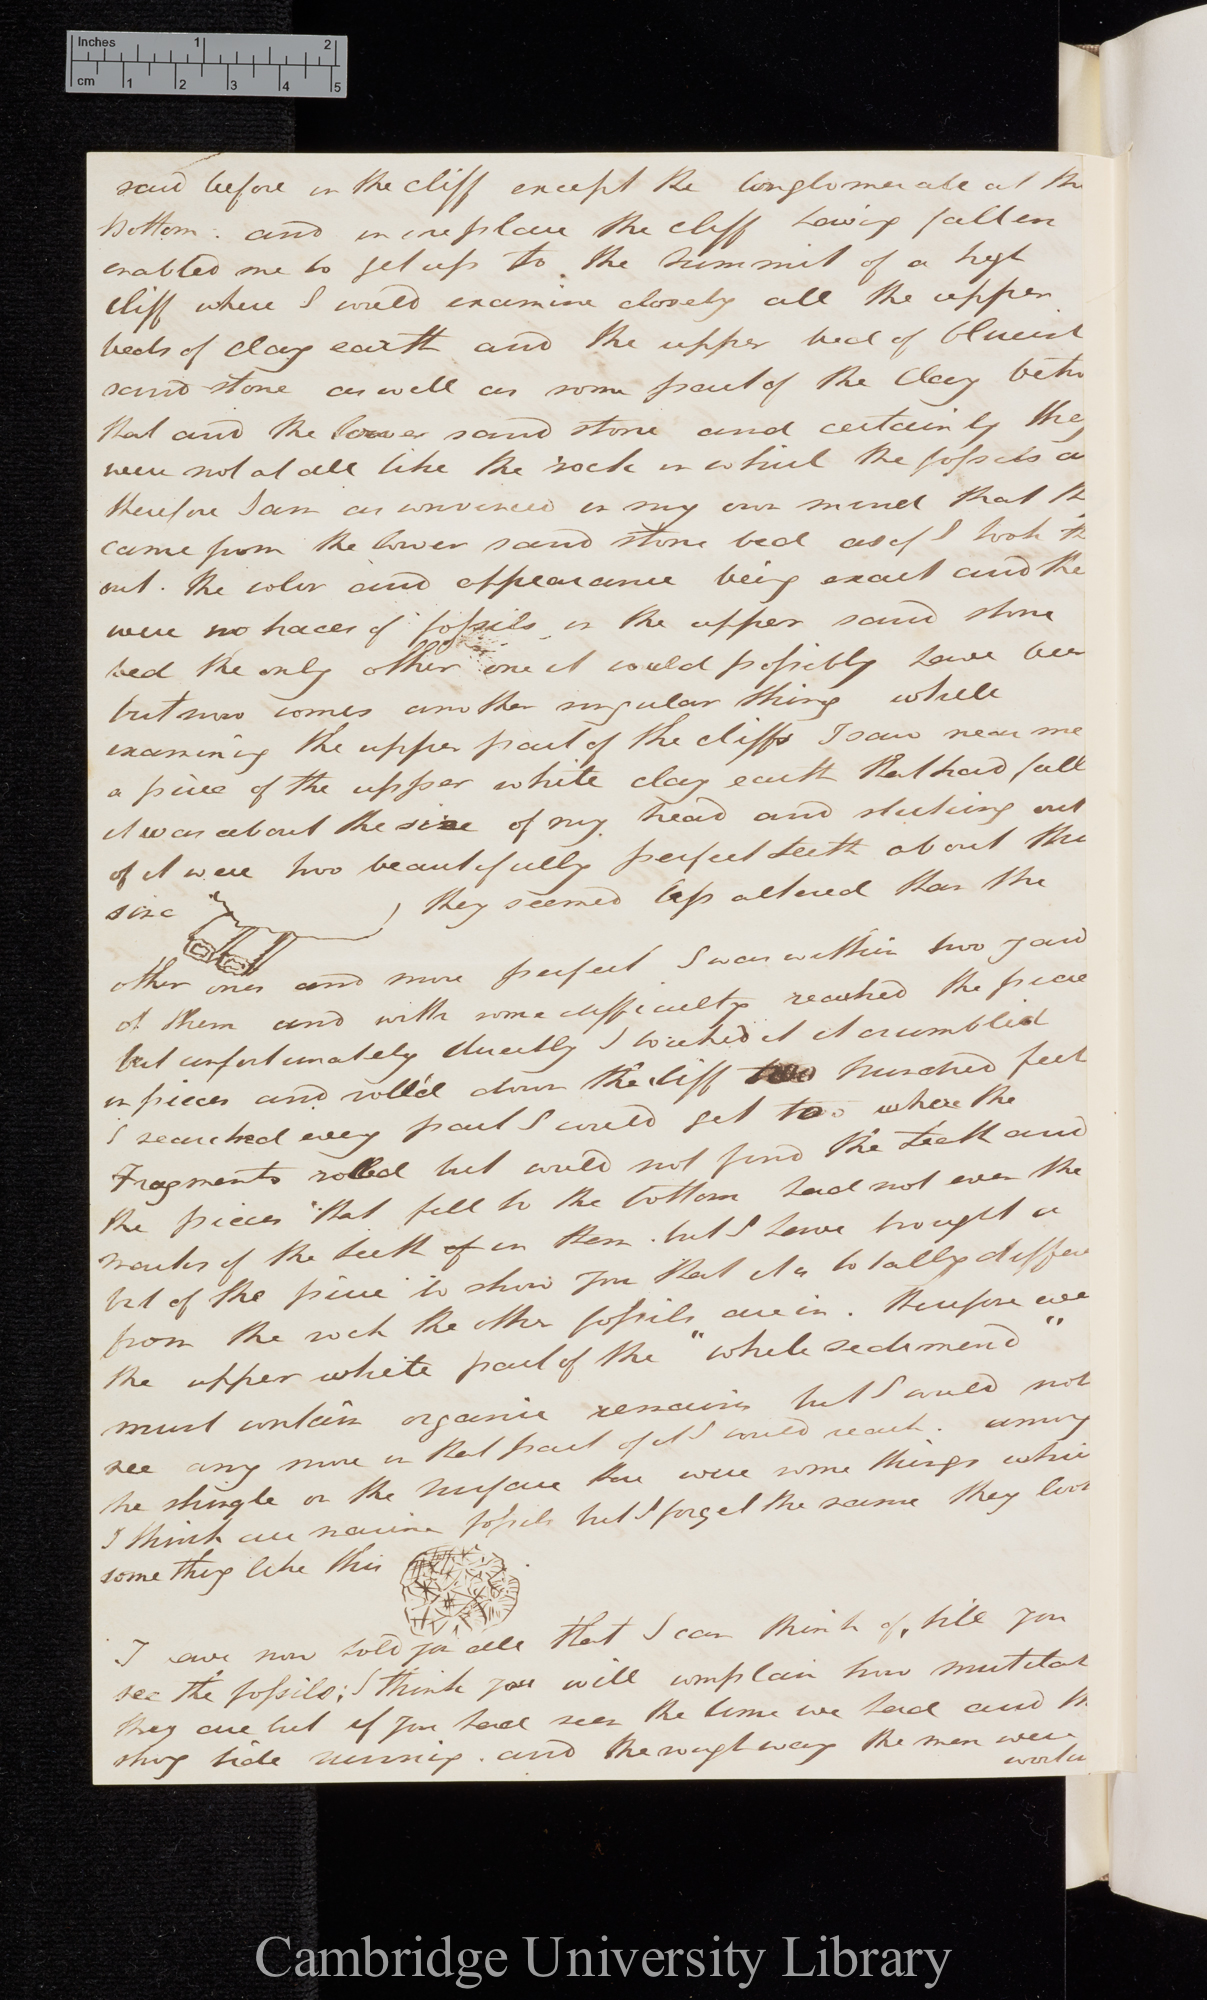 Inches 1 2
cm 1 2 3 4 5
said before in the cliff except the conglomerate at the
bottom. and in one place the cliff having fallen
enabled me to get up to the summit of a high
cliff where I could examine closely all the upper
beds of clay earth and the upper bed of blueish
sand-stone as well as some part of the Clay betw
that and the lower sand stone and certainly they
were not at all like the rock in which the fossils a
therefore I am as convinced in my own mind that th
came from the lower sand stone bed as if I took th
out. the color and appearance being exact and the
were no traces of fossils in the upper sand stone
bed the only other one it could possibly have been
but now comes another singular thing while
examining the upper part of the cliffs I saw near me
a piece of the upper white clay earth that had fall
it was about the size of my head and sticking out
of it were two beautifully perfect teeth about this
size they seemed less altered than the
other ones and more perfect I was within two yard
of them and with some difficulty reached the piece
but unfortunately directly I touched it it crumbled
in pieces and roll'd down the cliff two hundred feet
I searched every part I could get to where the
Fragments rolled but could not find the teeth and
the pieces that fell to the bottom had not even the
marks of the teeth of in them. but I have brought a
bit of the piece to show you that it is totally differe
from the rock the other fossils are in. therefore
the upper white part of the "whole sediment"
must contain organic remains but I could not
see any more in that part of it I could reach. among
he shingle on the surface there were some things whi
I think are marine fossils but I forget the name they look
something like this
I ave now told you all that I can think of, till you
see the fossils; I think you will complain how mutilat
they are but if you had seen the time we had and th
tide running. and the rough way the men were
workin
Cambridge University Library